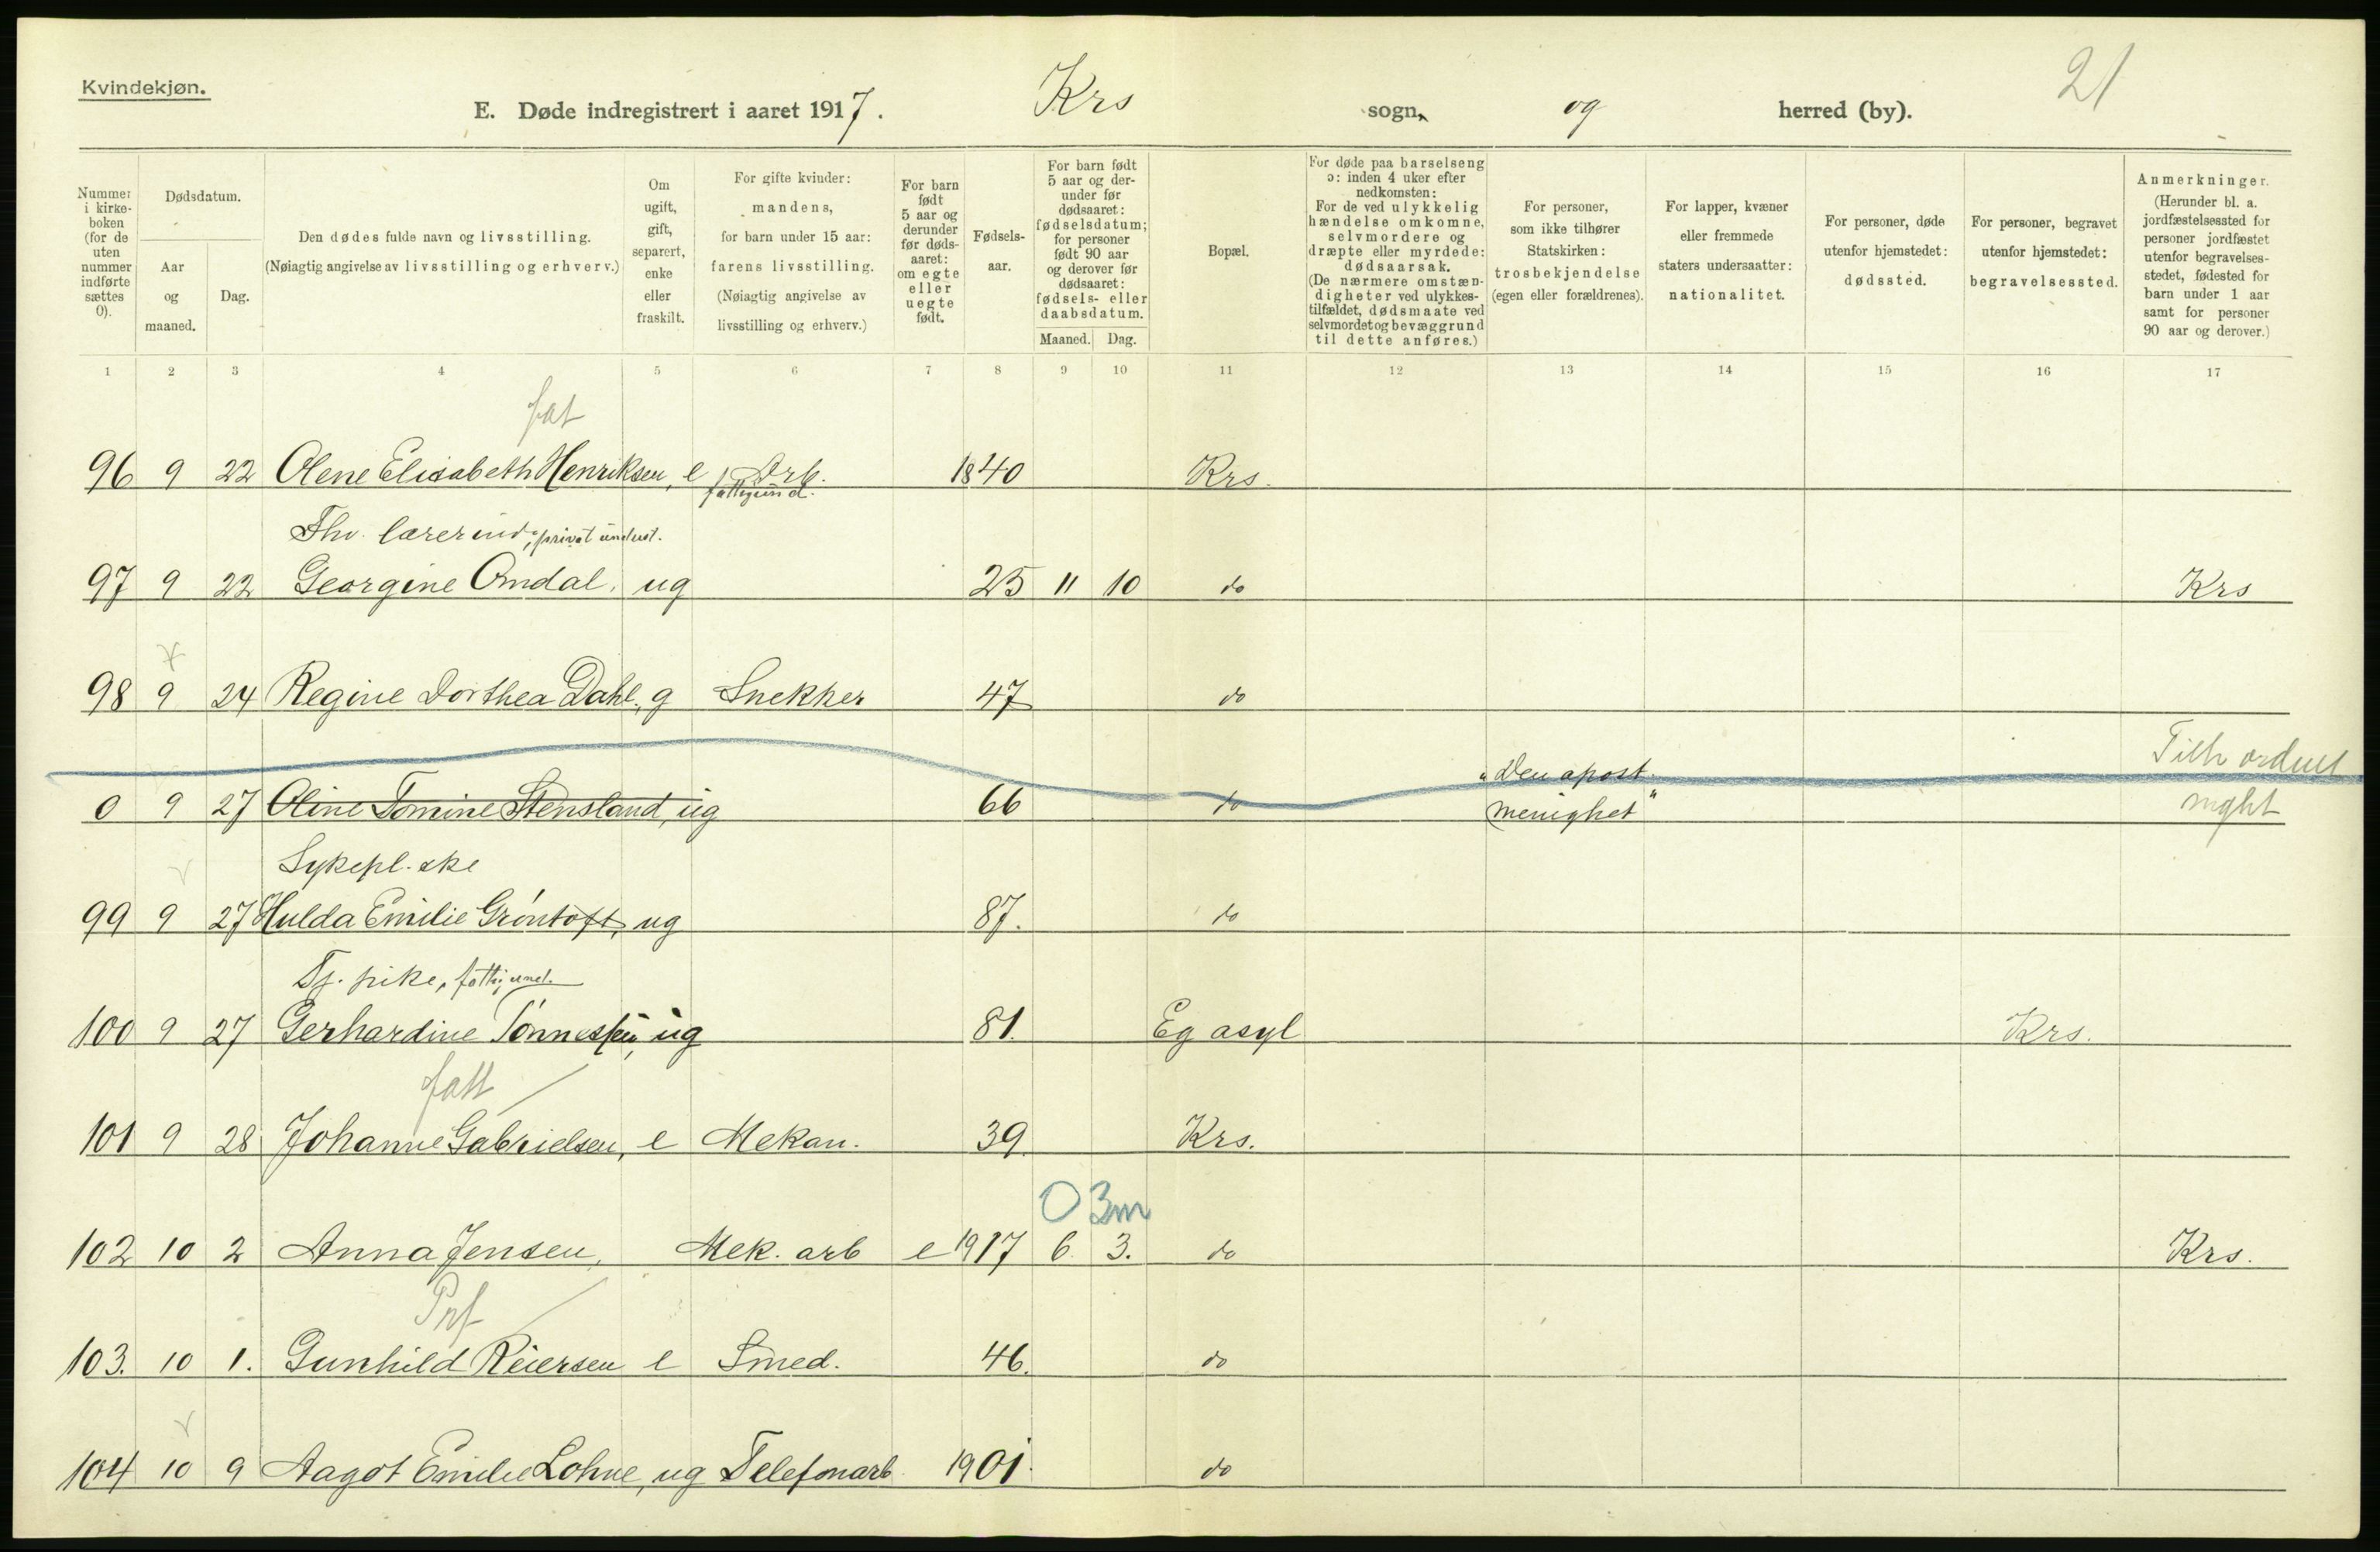 Kvindekjøn.
21
E. Døde indregistrert i aaret 1917. Krs sogn, og herred (by).
Nummer i kirkeboken (for de uten nummer indførte sættes 0).
Dødsdatum.
Aar og maaned.
Dag.
Den dødes fulde navn og livsstilling.
(Nøiagtig angivelse av livsstilling og erhverv.)
Om ugift, gift, separert, enke eller fraskilt.
For gifte kvinder: mandens, for barn under 15 aar: farens livsstilling.
(Nøiagtig angivelse av livsstilling og erhverv.)
For barn født 5 aar og derunder før dødsaaret: om egte eller uegte født.
Fødselsaar.
For barn født 5 aar og derunder før dødsaaret: fødselsdatum; for personer født 90 aar og derover før dødsaaret: fødsels- eller daabsdatum.
Maaned. Dag.
Bopæl.
For døde paa barselseng ɔ: inden 4 uker efter nedkomsten:
For de ved ulykkelig hændelse omkomne, selvmordere og dræpte eller myrdede: dødsaarsak.
(De nærmere omstændigheter ved ulykkestilfældet, dødsmaate ved selvmordet og bevæggrund til dette anføres.)
For personer, som ikke tilhører Statskirken: trosbekjendelse (egen eller forældrenes).
For lapper, kvæner eller fremmede staters undersaatter: nationalitet.
For personer, døde utenfor hjemstedet: dødssted.
For personer, begravet utenfor hjemstedet: begravelsessted.
Anmerkninger.
(Herunder bl. a. jordfæstelsessted for personer jordfæstet utenfor begravelsesstedet, fødested for barn under 1 aar samt for personer 90 aar og derover.)
1 2 3 4 5 6 7 8 9 10 11 12 13 14 15 16 17
fat
96 9 22 Olene Elisabeth Henriksen, e Arb. 1840 Krs.
fattigund.
Fhv. lærerind, privat underst.
97 9 22 Georgine Omdal, ug 25 11 10 do Krs
98 9 24 Regine Dorthea Dahl, g Snekker 47 do
"Den apost. Tilh ordnet
0 9 27 Oline Tomine Stensland, ug 66 do menighet" mght
Sykepl.ske
99 9 27 Hulda Emilie Grøntoft, ug 87. do
Tj. pike, fattigund.
100 9 27 Gerhardine Tønnessen, ug 81. Eg asyl Krs.
fatt
101 9 28 Johanne Gabrielsen, e Mekan. 39. Krs.
0 3m
102 10 2 Anna Jensen, Mek. arb e 1917 6. 3. do Krs.
Prf
103. 10 1. Gunhild Reiersen e Smed. 46. do
104 10 9 Aagot Emilie Lohne, ug Telefonarb. 1901. do